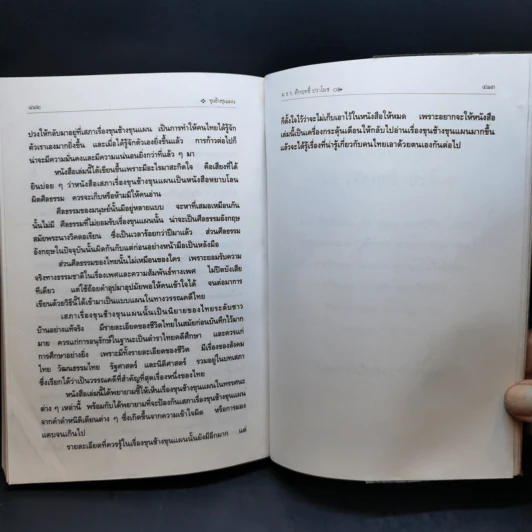 ๔๒๒ ❖ ขุนช้างขุนแผน
ปวงให้กลับมาอยู่ที่เสภาเรื่องขุนช้างขุนแผน เป็นการทำให้คนไทยได้รู้จัก
ตัวเราเองมากยิ่งขึ้น และเมื่อได้รู้จักตัวเองยิ่งขึ้นแล้ว การก้าวต่อไปก็
น่าจะมีความมั่นคงและมีความแน่นอนยิ่งกว่าที่แล้ว ๆ มา
หนังสือเล่มนี้ได้เขียนขึ้นเพราะมีอะไรมาสะกิดใจ คือเสียงที่ได้
ยินบ่อย ๆ ว่าหนังสือเสภาเรื่องขุนช้างขุนแผนเป็นหนังสือหยาบโลน
ผิดศีลธรรม ควรจะเก็บหรือห้ามมิให้คนอ่าน
ศีลธรรมของมนุษย์นั้นมีอยู่หลายแบบ จะหาที่เสมอเหมือนกัน
นั้นไม่มี ศีลธรรมที่ไม่ยอมรับเรื่องขุนแผนนั้น น่าจะเป็นศีลธรรมอังกฤษ
สมัยพระนางวิคตอเรียน ซึ่งเป็นเวลาร้อยกว่าปีมาแล้ว ส่วนศีลธรรม
อังกฤษในปัจจุบันนั้นผิดกันกับแต่ก่อนอย่างหน้ามือเป็นหลังมือ
ส่วนศีลธรรมของไทยนั้นไม่เหมือนของใคร เพราะยอมรับความ
จริงทางธรรมชาติในเรื่องเพศและความสัมพันธ์ทางเพศ ไม่ปิดบังเสีย
ทีเดียว แต่ใช้ถ้อยคำอุปมาอุปมัยพอให้คนเข้าใจได้ จนต่อมาการ
เขียนด้วยวิธีนี้ได้เข้ามาเป็นแบบแผนในทางวรรณคดีไทย
เสภาเรื่องขุนช้างขุนแผนนั้นเป็นนิยายของไทยระดับชาว
บ้านอย่างแท้จริง มีรายละเอียดของชีวิตไทยในสมัยก่อนบันทึกไว้มาก
มาย ควรแก่การอนุรักษ์ในฐานะเป็นตำราไทยคดีศึกษา และควรแก่
การศึกษาอย่างยิ่ง เพราะมีทั้งรายละเอียดของชีวิต มีเรื่องของสังคม
ไทย วัฒนธรรมไทย รัฐศาสตร์ และนิติศาสตร์ รวมอยู่ในบทเสภา
ซึ่งเรียกได้ว่าเป็นวรรณคดีที่สำคัญที่สุดเรื่องหนึ่งของไทย
หนังสือเล่มนี้ได้พยายามชี้ให้เห็นเรื่องขุนช้างขุนแผนในทรรศนะ
ต่าง ๆ เหล่านี้ พร้อมกับได้พยายามที่จะป้องกันเสภาเรื่องขุนช้างขุนแผน
จากคำตำหนิติเตียนต่าง ๆ ซึ่งเกิดขึ้นจากความเข้าใจผิด หรือการมอง
แคบจนเกินไป
รายละเอียดที่ควรรู้ในเรื่องขุนช้างขุนแผนนั้นยังมีอีกมาก แต่
ม.ร.ว. คึกฤทธิ์ ปราโมช ๔๒๓
ก็ตั้งใจไว้ว่าจะไม่เก็บเอาไว้ในหนังสือให้หมด เพราะอยากจะให้หนังสือ
เล่มนี้เป็นเครื่องกระตุ้นเตือนให้กลับไปอ่านเรื่องขุนช้างขุนแผนมากขึ้น
แล้วจะได้รู้เรื่องที่น่ารู้เกี่ยวกับคนไทยเอาด้วยตนเองกันต่อไป